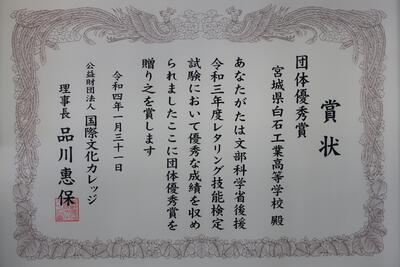 賞状
団体優秀賞
宮城県白石工業高等学校 殿
あなたがたは文部科学省後援
令和三年度レタリング技能検定
試験において優秀な成績を収め
られましたここに団体優秀賞を
贈り之を賞します
令和四年一月三十一日
公益財団法人 国際文化カレッジ
理事長 品川惠保